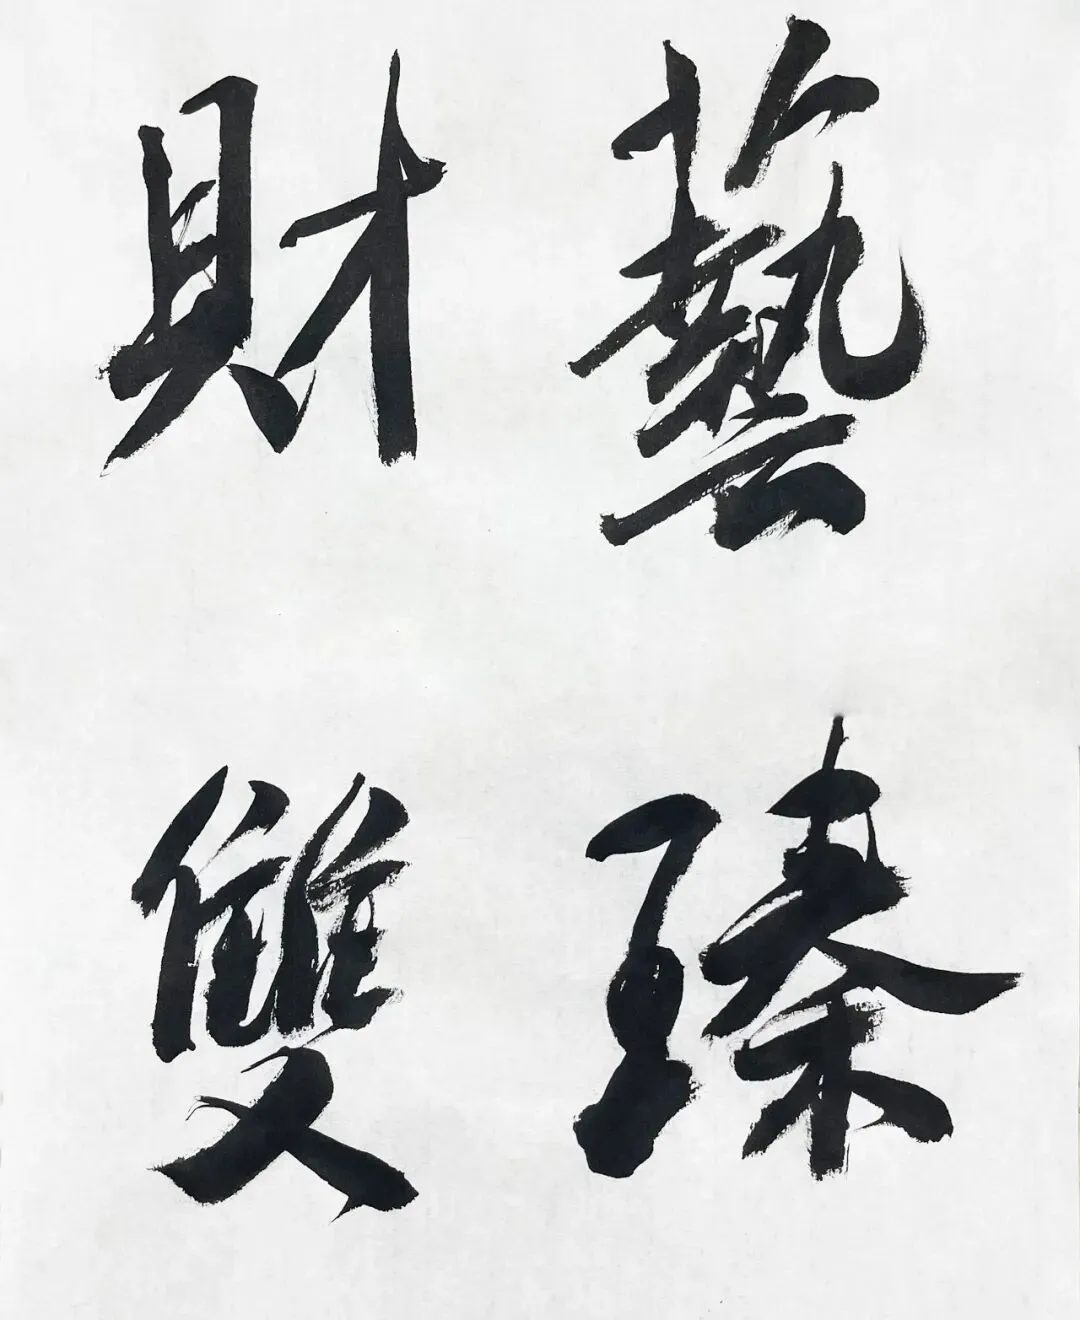 財藝
雙臻